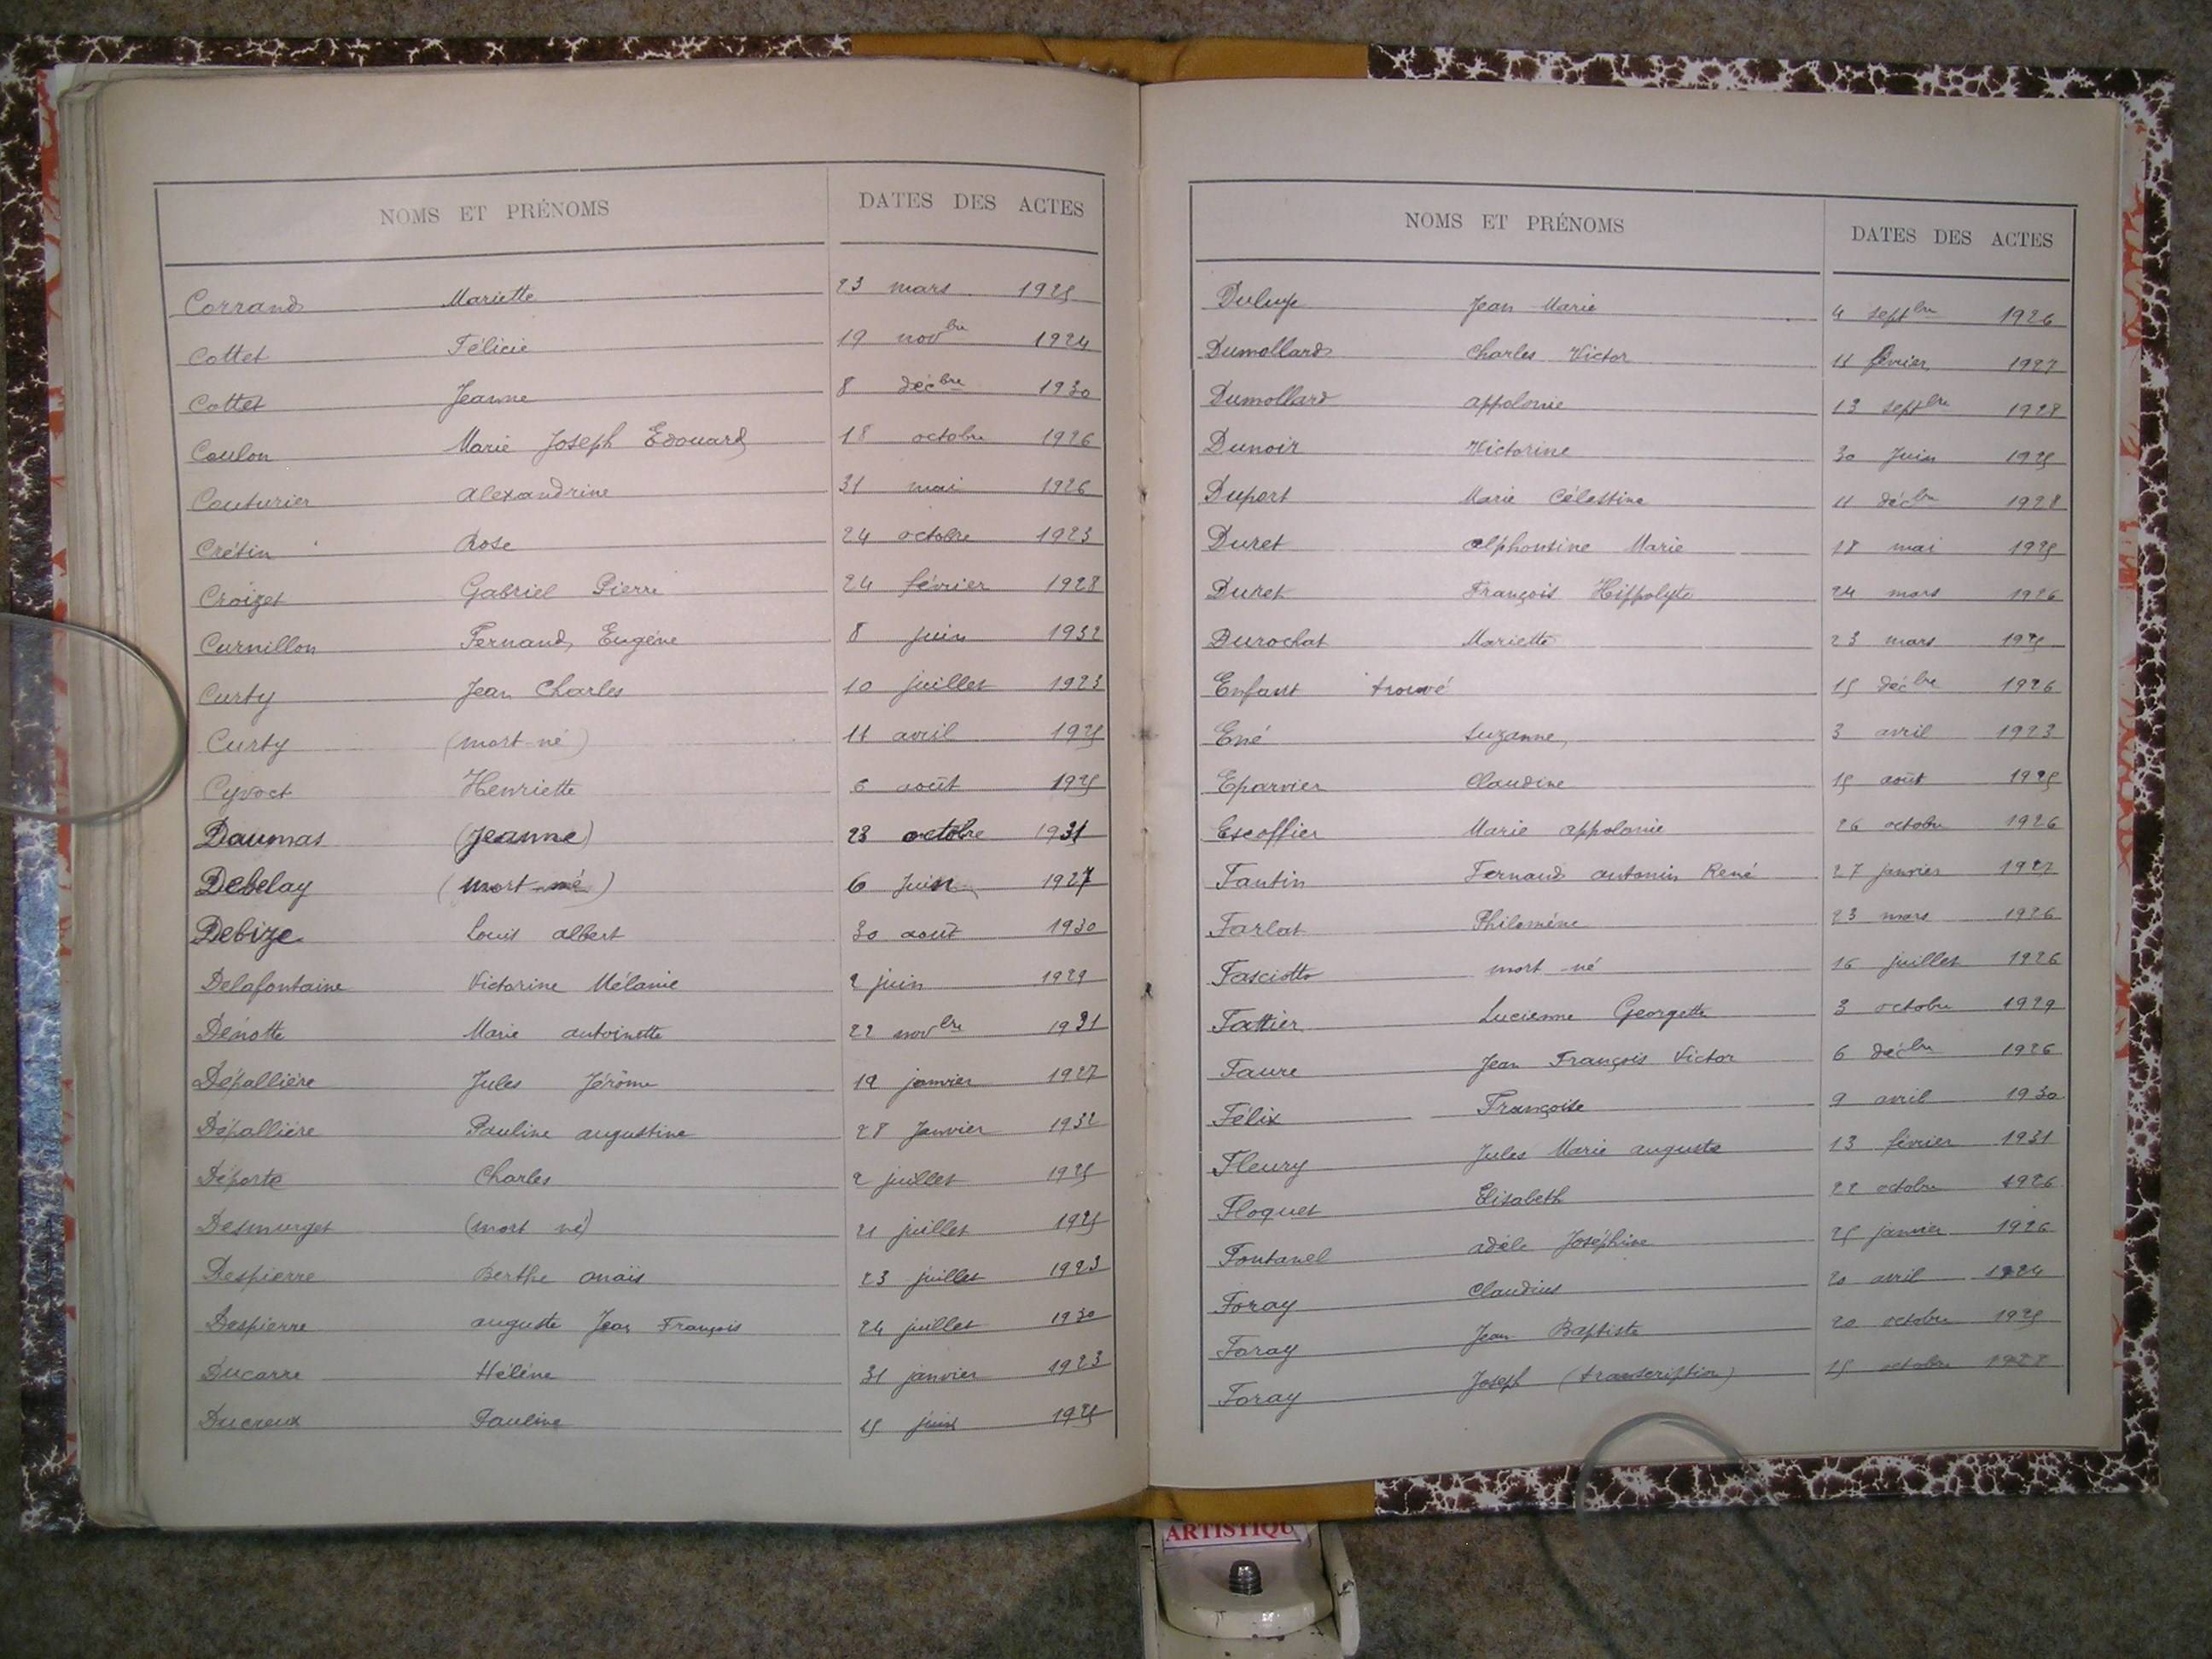 NOMS ET PRÉNOMS DATES DES ACTES
Corrand Mariette 23 mars 1925
Cottet Félicie 19 novbre 1924
Cottet Jeanne 8 décbre 1930
Coulon Marie Joseph Edouard 18 octobre 1926
Couturier Alexandrine 31 mai 1926
Crétin Rose 24 octobre 1923
Croizet Gabriel Pierre 24 février 1928
Curnillon Fernand, Eugène 8 juin 1932
Curty Jean Charles 10 juillet 1923
Curty (mort-né) 11 avril 1925
Cyvoct Henriette 6 août 1925
Daumas (Jeanne) 23 octobre 1931
Debelay (mort-né) 6 Juin 1927
Debize Louis albert 30 août 1930
Delafontaine Victorine Mélanie 2 juin 1929
Denotte Marie antoinette 22 novbre 1931
Dépallière Jules Jérôme 19 janvier 1927
Dépallière Pauline augustine 28 Janvier 1932
Déporte Charles 2 juillet 1925
Desmurget (mort né) 21 juillet 1925
Despierre Berthe anaïs 23 juillet 1923
Despierre auguste Jean François 24 juillet 1930
Ducarre Hélène 31 janvier 1923
Ducreux Pauline 15 juin 1925
NOMS ET PRÉNOMS DATES DES ACTES
Jean Marie 4 septbre 1926
Dumollard Charles Victor 11 février 1927
Dumollard appolonie 13 septbre 1928
Dunoir Victorine 30 Juin 1925
Duport Marie Célestine 11 décbre 1928
Duret alphonsine Marie 18 mai 1925
Duret François Hippolyte 24 mars 1926
Durochat Mariette 23 mars 1925
Enfant trouvé 15 décbre 1926
Ené Suzanne, 3 avril 1923
Eparvier Claudine 15 août 1925
Escoffier Marie appolonie 26 octobre 1926
Fantin Fernand antonin René 27 janvier 1927
Farlat Philomène 23 mars 1926
Fasciotto mort-né 16 juillet 1926
Fattier Lucienne Georgette 3 octobre 1929
Faure Jean François Victor 6 décbre 1926
Félix Françoise 9 avril 1930
Fleury Jules Marie auguste 13 février 1931
Floquet Elisabeth 22 octobre 1926
Fontanel adèle Joséphine 25 janvier 1926
Foray Claudius 20 avril 1924
Foray Jean Baptiste 20 octobre 1925
Foray Joseph (transcription) 15 octobre
ARTISTIQU